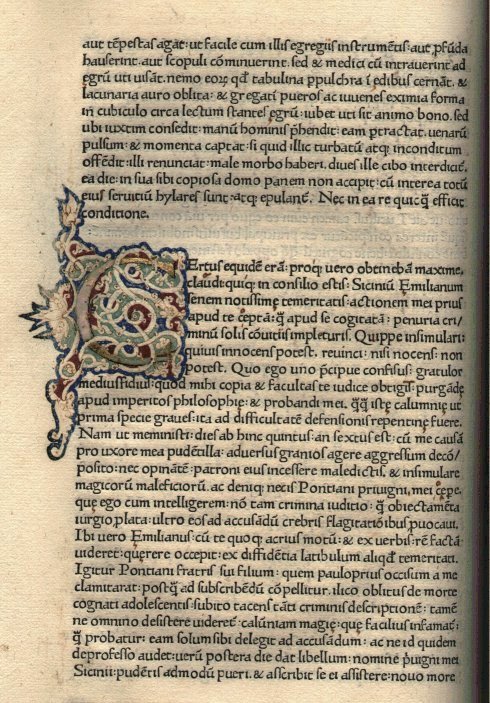 aut tēpestas agat: ut facile cum illis egregiis instrumētis: aut ꝓfūda
hauserint. aut scopuli cōminuerint. sed & medici cū intrauerint ad
egrū uti uisāt. nemo eoꝝ qđ tabulina ꝑpulchra ī edibus cernāt. &
lacunaria auro oblita: & gregati pueros ac iuuenes eximia forma
in cubiculo circa lectum stantes egrū: iubet uti sit animo bono. sed
ubi iuxtim consedit: manū hominis p̄hendit: eam ꝑtractat. uenarū
pulsum: & momenta captat: si quid illic turbatū atqȝ inconditum
offēdit: illi renunciat: male morbo haberi. diues ille cibo interdicit.
ea die: in sua sibi copiosa domo panem non accipit: cū interea totū
eius seruitiū hylares sunt: atqȝ epulant̄. Nec in ea re quicq̄ efficit
conditione.
CErtus equidē erā: proqȝ uero obtinebā maxime.
claudi quiqȝ in consilio estis: Siciniū Emilianum
senem notissime temeritatis: actionem mei prius
apud te cęptā: q̄ apud se cogitatā: penuria cri/
minū solis cōuitiis impleturis. Quippe insimulari:
quiuis innocens potest. reuinci: nisi nocens: non
potest. Quo ego uno p̄cipue confisus: gratulor
mediusfidius: quod mihi copia & facultas te iudice obtigit: purgādę
apud imperitos philosophię: & probandi mei. q̄q̄ istę calumnię ut
prima specie graues: ita ad difficultatē defensionis repentinę fuere.
Nam ut meministi: dies ab hinc quintus: an sextus est: cū me causā
pro uxore mea pudētilla: aduersus granios agere aggressum decō/
posito: nec opinātē: patroni eius incessere maledictis. & insimulare
magicorū maleficiorū. ac deniqȝ necis Pontiani priuigni mei cępe.
que ego cum intelligerem: nō tam crimina iuditio: q̄ obiectamēta
iurgio ꝓlata: ultro eos ad accusādū crebris flagitatiōibus ꝓuocaui.
Ibi uero Emilianus: cū te quoqȝ acrius motū: & ex uerbis rē factā
uideret: quęrere occepit: ex diffidentia latibulum aliqđ temeritati.
Igitur Pontiani fratris sui filium: quem pauloprius occisum a me
clamitarat: postq̄ ad subscribēdū cōpellitur. ilico oblitus de morte
cognati adolescentis: subito tacens tāti criminis descriptionē: tamē
ne omnino desistere uideret̄: calūniam magię: quę facilius infamat̄:
q̄ probatur: eam solum sibi delegit ad accusādum: ac ne id quidem
deprofesso audet: uerū postera die dat libellum: nomine p̄uigni mei
Sicinii: pudētis admodū pueri. & ascribit se ei assistere: nouo more